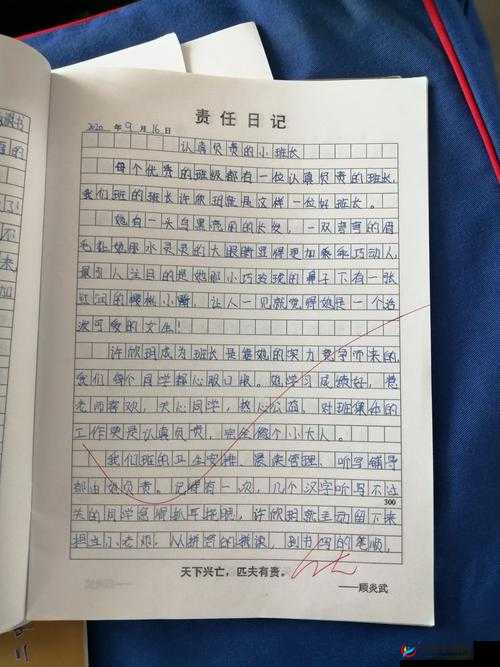 责任日记
2020 年 9 月 16 日
认真负责的小班长
每个优秀的班级都有一位认真负责的班长,
我们班的班长许欣玥就是这样一位好班长。
她有一头乌黑亮丽的长发,一双弯弯的眉
毛让她那水灵灵的大眼睛显得更加乖巧动人,
最引人注目的是她那小巧玲珑的鼻子下有一张
红润的樱桃小嘴,让人一见就觉得她是一个活
泼可爱的女生!
许欣玥成为班长是靠她的实力竞争而来的,
我们每个同学都心服口服。她学习成绩好,惹
老师喜欢,关心同学,热心公益,对班集体的
工作更是认真负责,完全像个小大人。
我们班的卫生安排、晨读管理、听写辅导
都由她负责。记得有一次,几个汉字听写不过
300
关的同学急得抓耳挠腮,许欣玥就主动留下来
担当小老师,从拼音的拼读,到书写的笔顺,
天下兴亡,匹夫有责。
——顾炎武